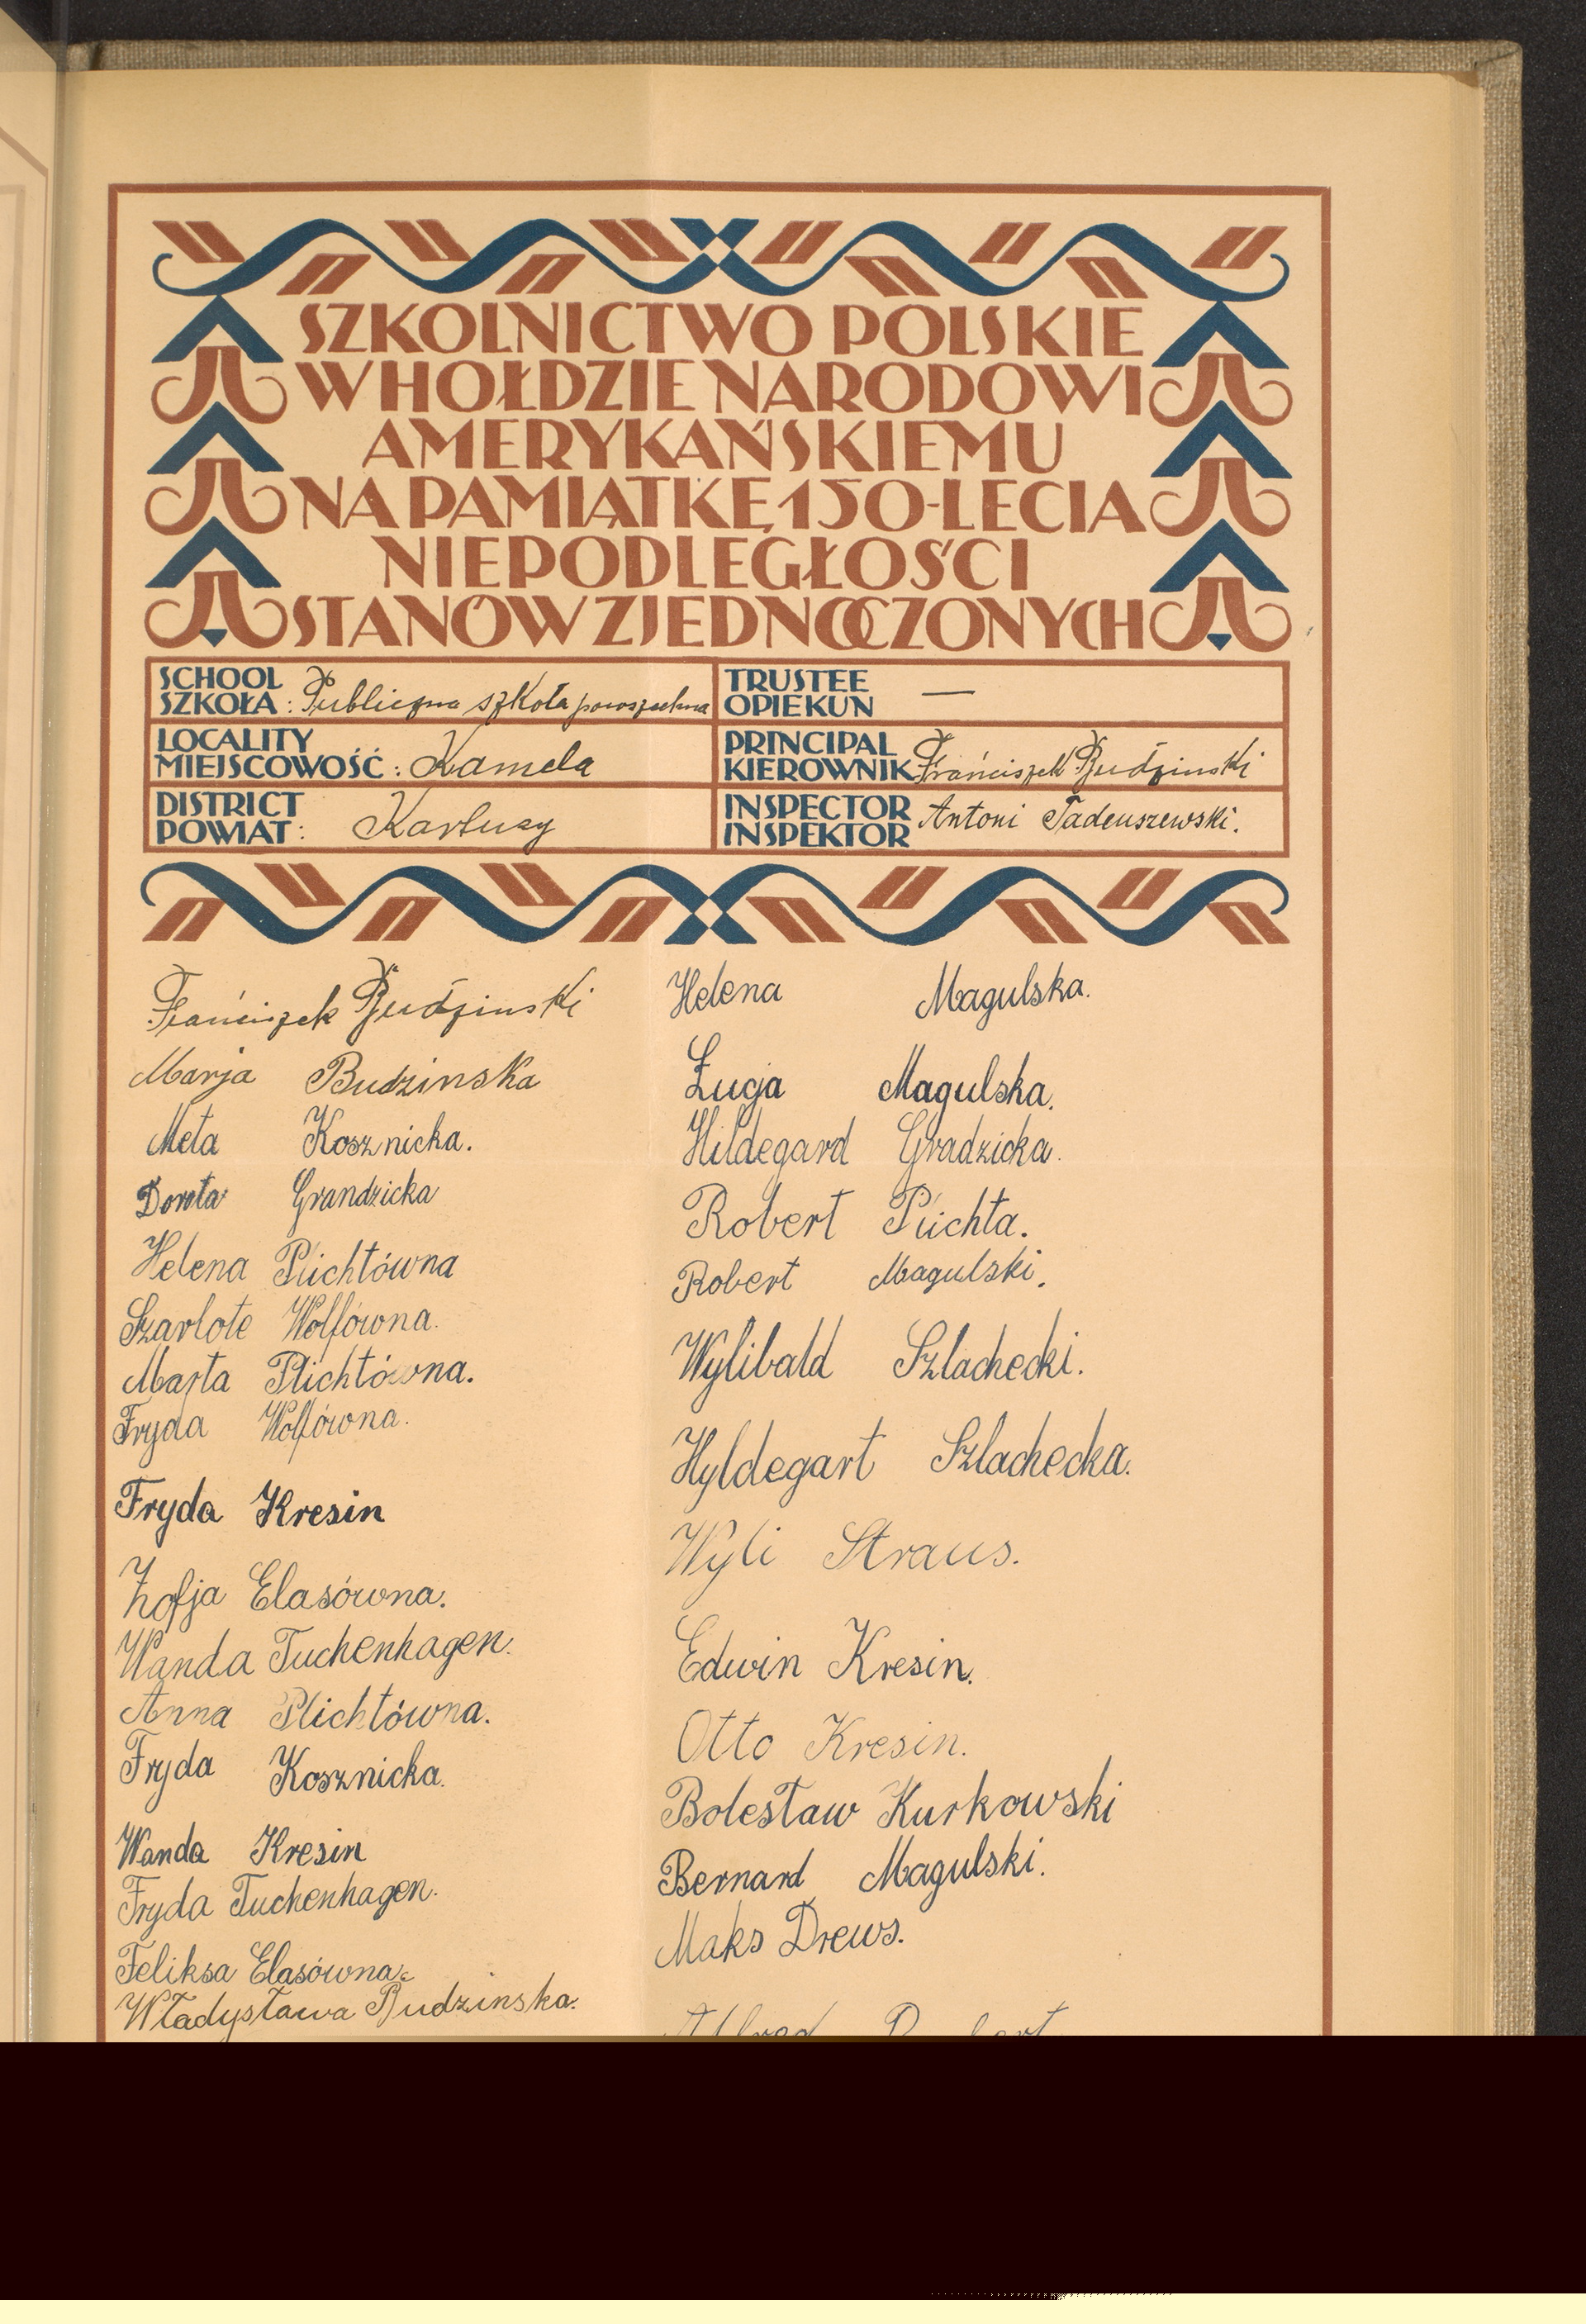 SZKOLNICTWO POLSKIE
W HOŁDZIE NARODOWI
AMERYKAŃSKIEMU
NA PAMIĄTKĘ 150-LECIA
NIEPODLEGŁOŚCI
STANÓW ZJEDNOCZONYCH
SCHOOL
SZKOŁA: Publiczna szkoła powszechna
TRUSTEE
OPIEKUN —
LOCALITY
MIEJSCOWOŚĆ: Kamela
PRINCIPAL
KIEROWNIK Franciszek Budzinski
DISTRICT
POWIAT: Kartuzy
INSPECTOR
INSPEKTOR Antoni Tadeuszewski.
Franciszek Budzinski
Marja Budzinska
Meta Kosznicka.
Dorota Grandzicka
Helena Plichtówna
Szarlote Wolfówna.
Marta Plichtówna.
Fryda Wolfówna.
Fryda Kresin
Zofja Elasówna.
Wanda Tuchenhagen.
Anna Plichtówna.
Fryda Kosznicka.
Wanda Kresin
Fryda Tuchenhagen.
Feliksa Elasówna.
Władysława Budzinska.
Helena Magulska.
Łucja Magulska.
Hildegard Gradzicka.
Robert Plichta.
Robert Magulski.
Wylibald Szlachecki.
Hyldegart Szlachecka.
Wyli Straus.
Edwin Kresin.
Otto Kresin.
Bolesław Kurkowski
Bernard Magulski.
Maks Drews.